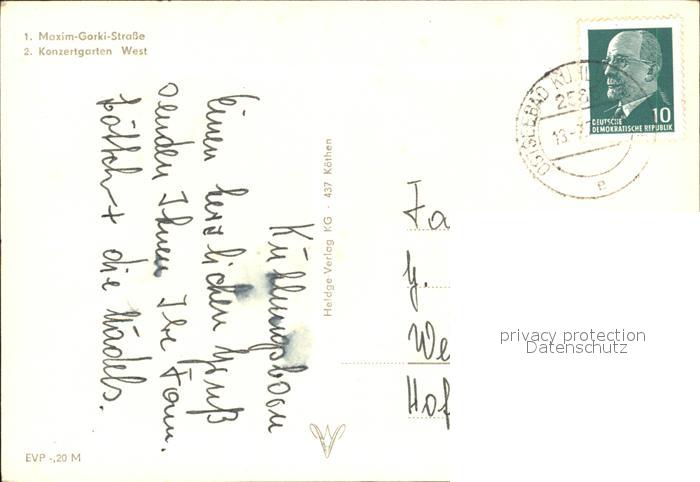 1. Maxim-Gorki-Straße
2. Konzertgarten West
Kühlungsborn
Einen herzlichen Gruß
senden Ihnen Ihre Fam.
die Mädels.
Heldge Verlag KG · 437 Köthen
EVP -,20 M
OSTSEEBAD KÜHL
DEUTSCHE
DEMOKRATISCHE REPUBLIK
10
Fa
We
Hof
privacy protection
Datenschutz